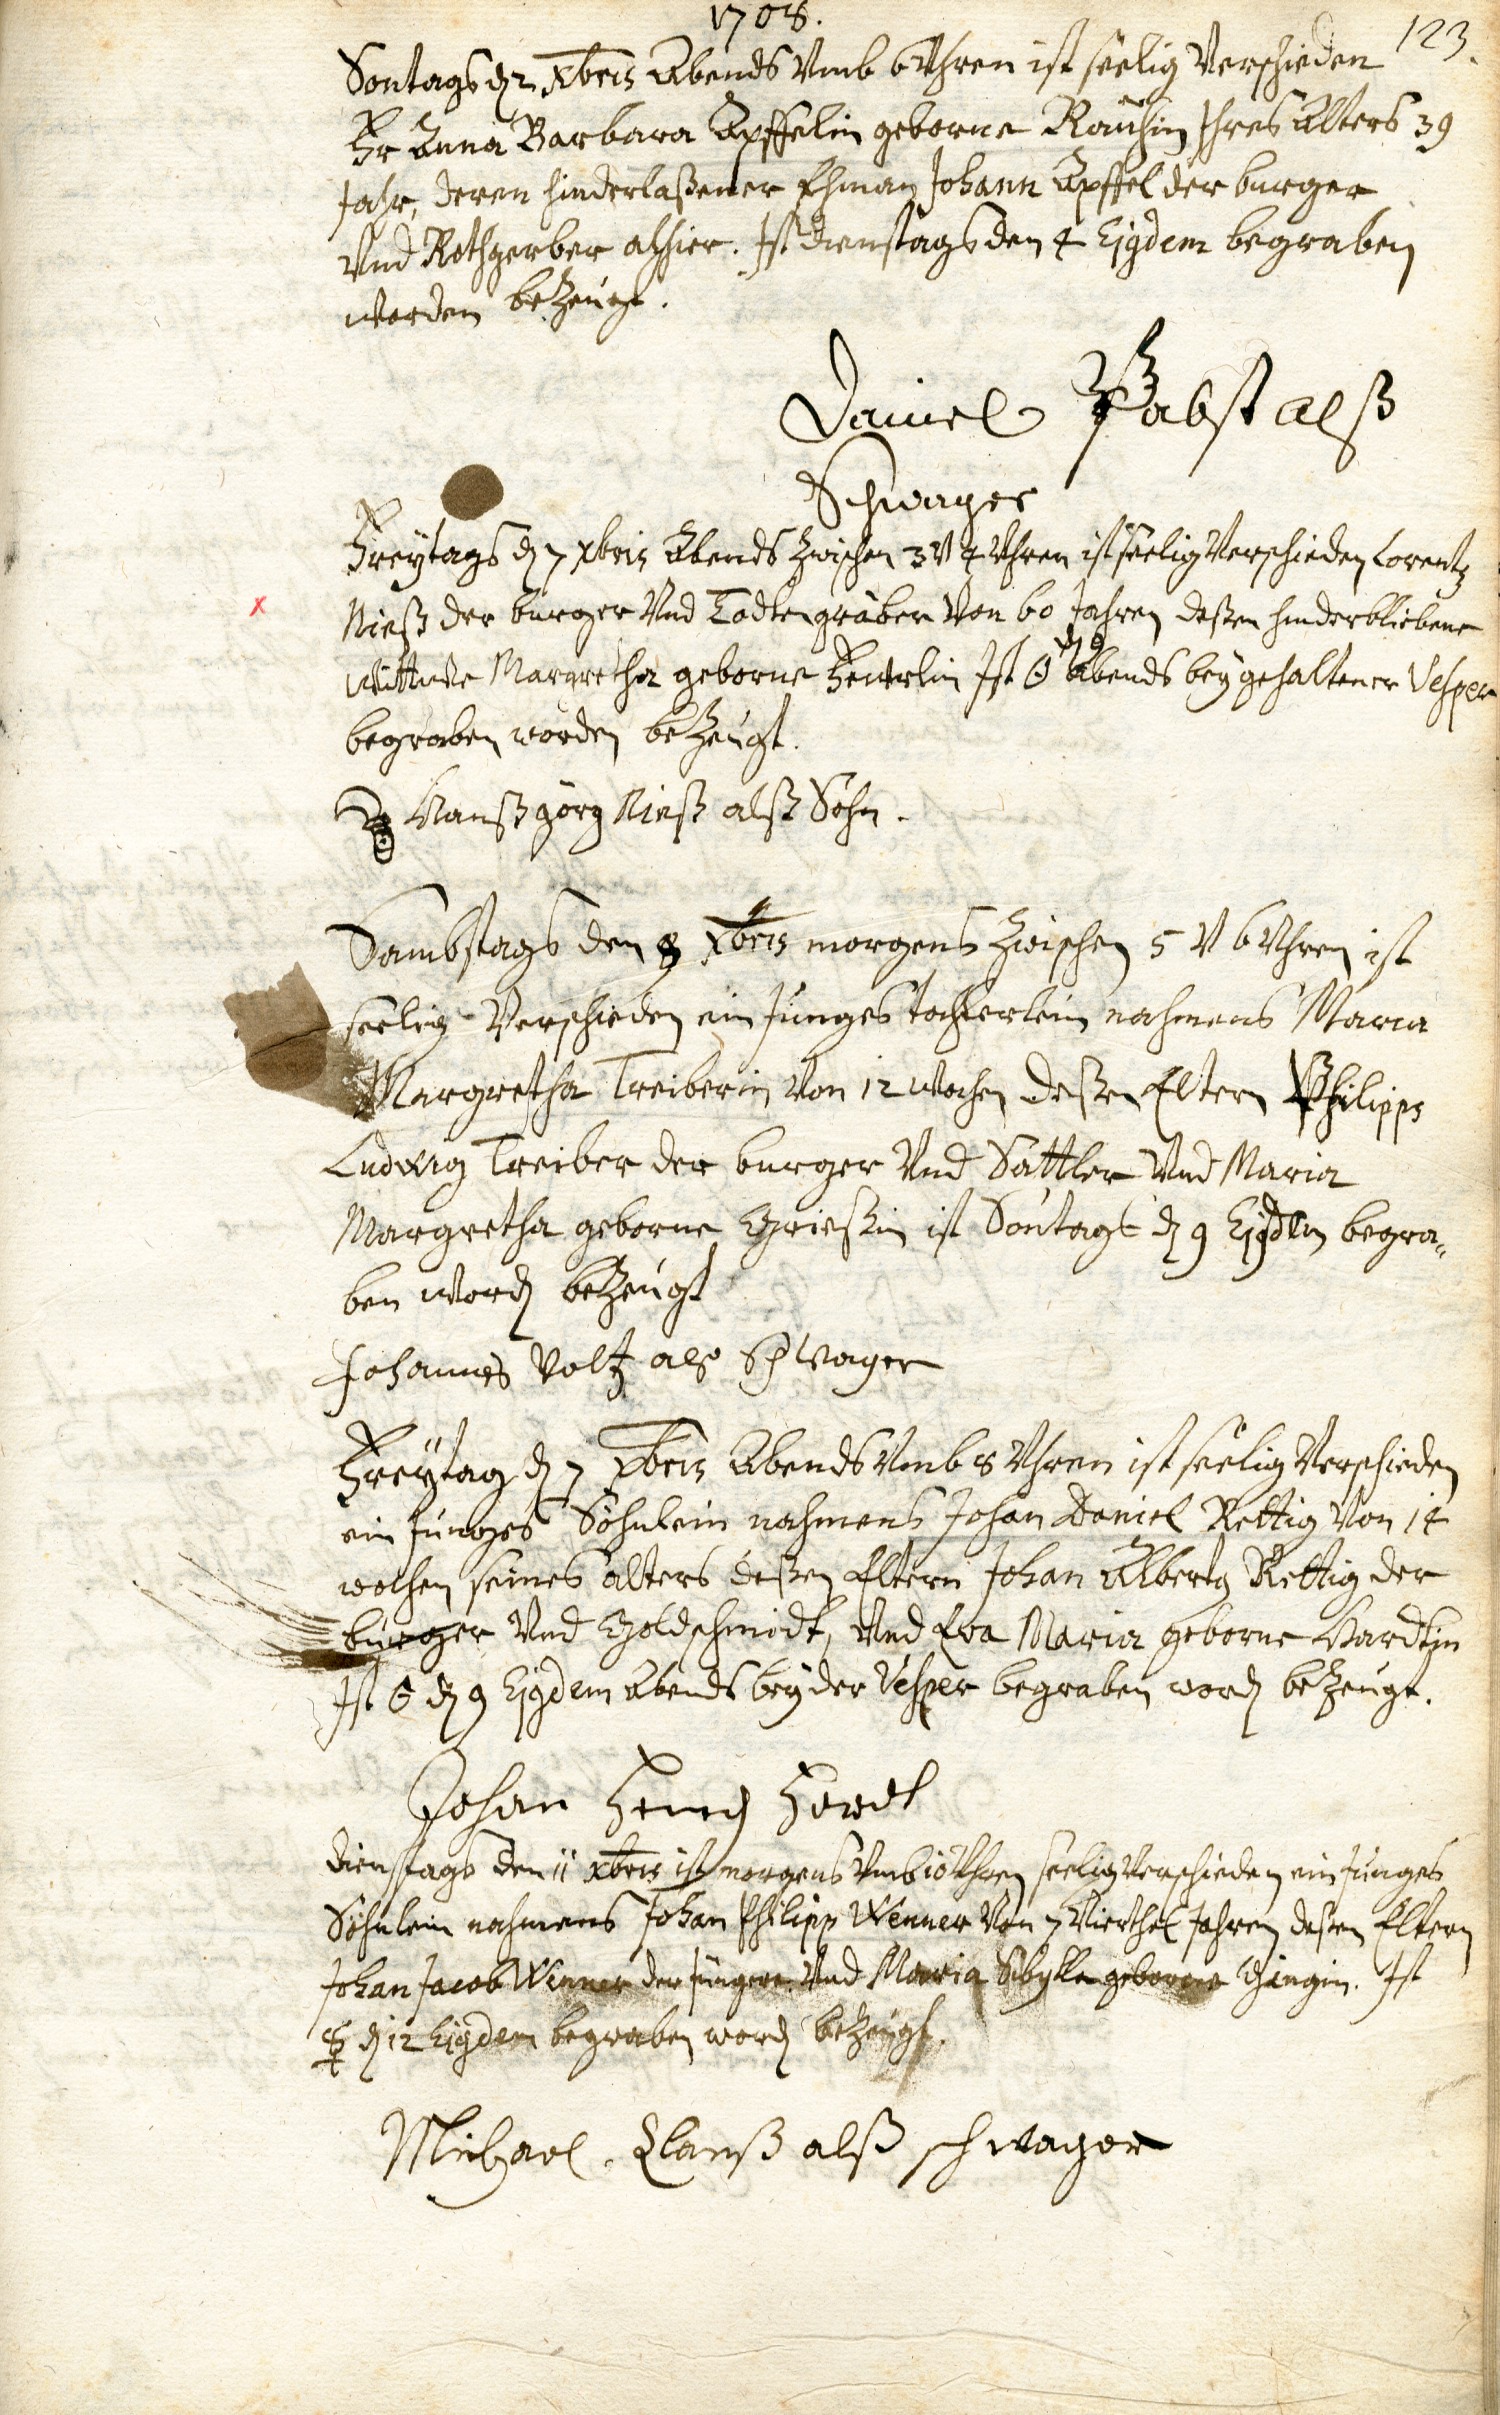 1708.
123.
Sontags dn 2 Xbris Abends Vmb 6 Vhren ist seelig Verschieden
Fr Anna Barbara Apffelin geborne Rauchin Ihres Alters 39
Jahr, deren hinderlaßener Ehman Johann Apffel der burger
Vnd Rothgerber alhier. Ist dienstags den 4 Ejgdem begraben
worden bezeugt.
Daniel Pabst alß
Schwager
Freytags dn 7 Xbris Abends zwischen 3 V 4 Vhren ist seelig Verschieden Lorentz
Nieß der burger Vnd Todtengräber Von 60 Jahren deßen hinderbliebene
dn 9
wittwe Margretha geborne Ist ☉ Abends bey gehaltener Vesper
begraben worden bezeugt.
Hanß görg Nieß alß Sohn.
Sambstags den 8 Xbris morgens zwischen 5 V 6 Vhren ist
seelig Verschieden ein Junges tochterlein nahmens Maria
Margretha Treiberin Von 12 wochen deßen Eltern Philipps
Ludwig Treiber der burger Vnd Sattler Vnd Maria
Margretha geborne Grießin ist Sontags dn 9 Ejgdem begra„
ben wordn bezeugt
Johannes Voltz als Schwager
Freytag dn 7 Xbris Abends Vmb 8 Vhren ist seelig Verschieden
ein Junges Söhnlein nahmens Johan Daniel Rettig Von 14
wochen seines alters deßen Eltern Johan Albertg Rettig der
burger Vnd Goldschmidt, Vnd Eva Maria geborne Hardtin
Ist ☉ dn 9 Ejgdem Abends bey der Vesper begraben wordn bezeugt.
Johan
dienstags den 11 Xbris ist morgens Vmb 10 Vhren seelig Verschieden ein Junges
Söhnlein nahmens Johan Philipp Wenner Von 7 Vierthel Jahren deßen Eltern
Johan Jacob Wenner der Jüngere Vnd Maria Sibylla geborne Ist
☿ dn 12 Ejgdem begraben wordn bezeugt.
Michael Clanß alß schwager